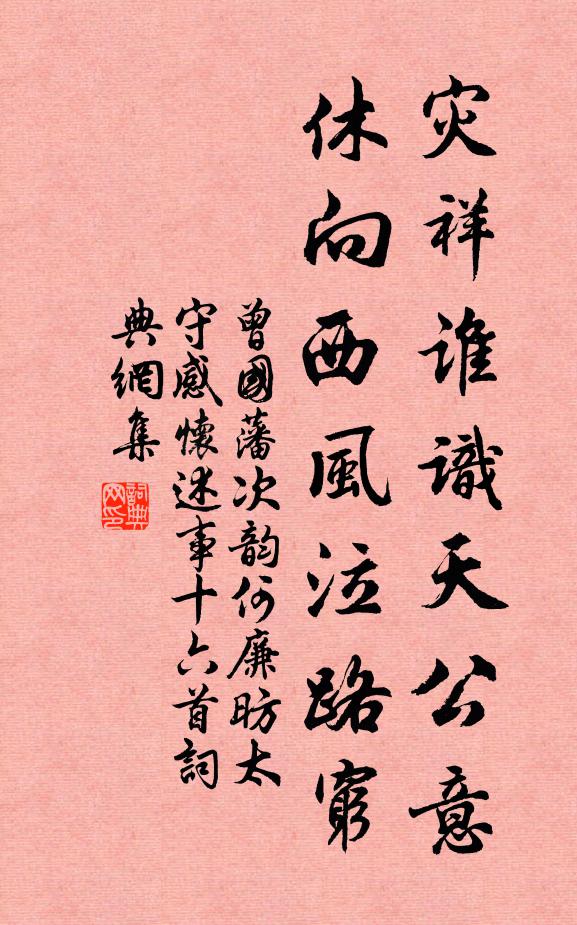 灾祥谁識天公意
休向西風泣路窮
曾國藩次韵何廉昉太
守感懷述事十六首詞
典網集
詞典网印